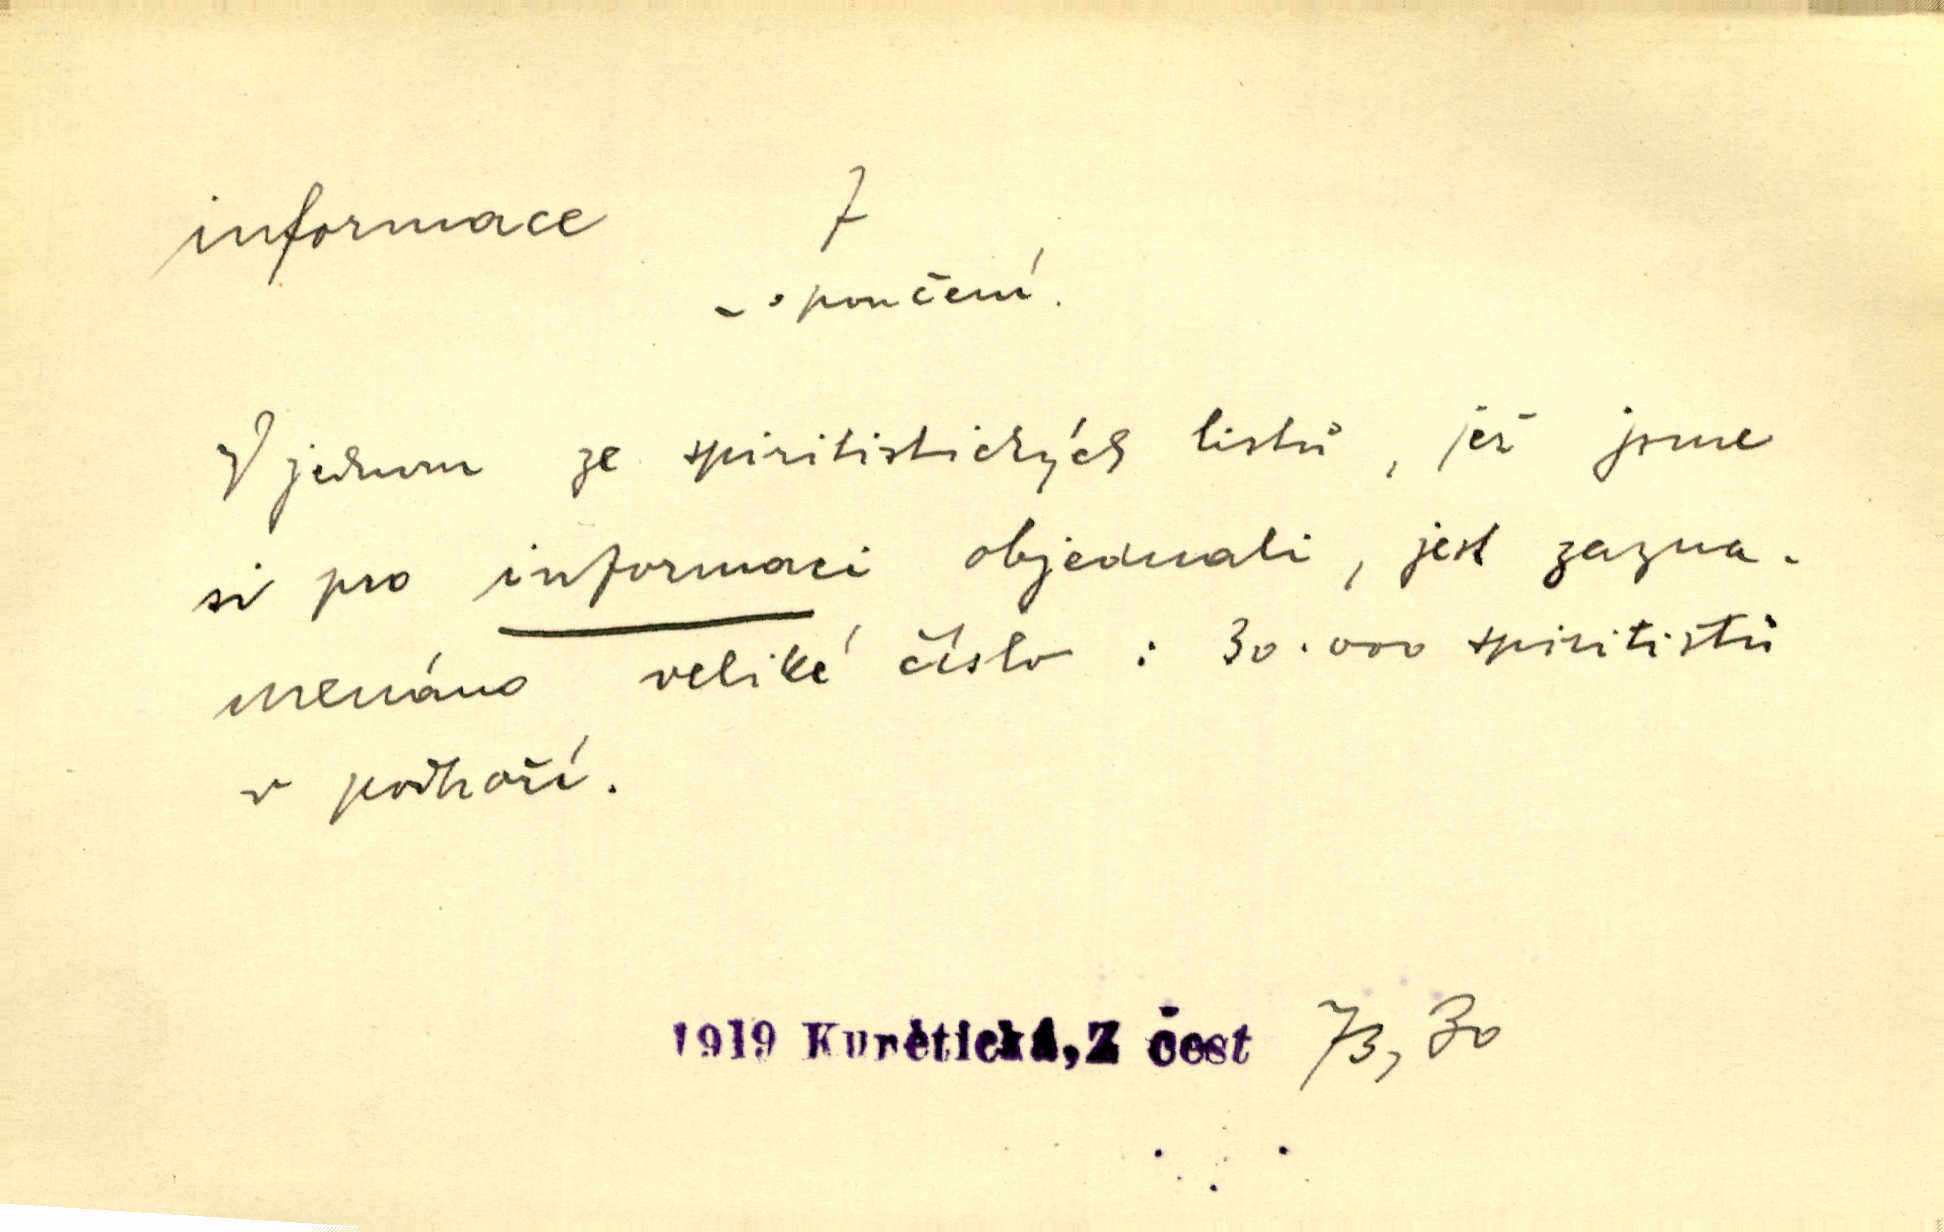 informace 7
poučení.
V jednom ze spiritistických listů, jež jsme
si pro informaci objednali, jest zazna-
menáno veliké číslo: 30.000 spiritistů
v podhoří.
1919 Kunětická, Z čest 73, 30